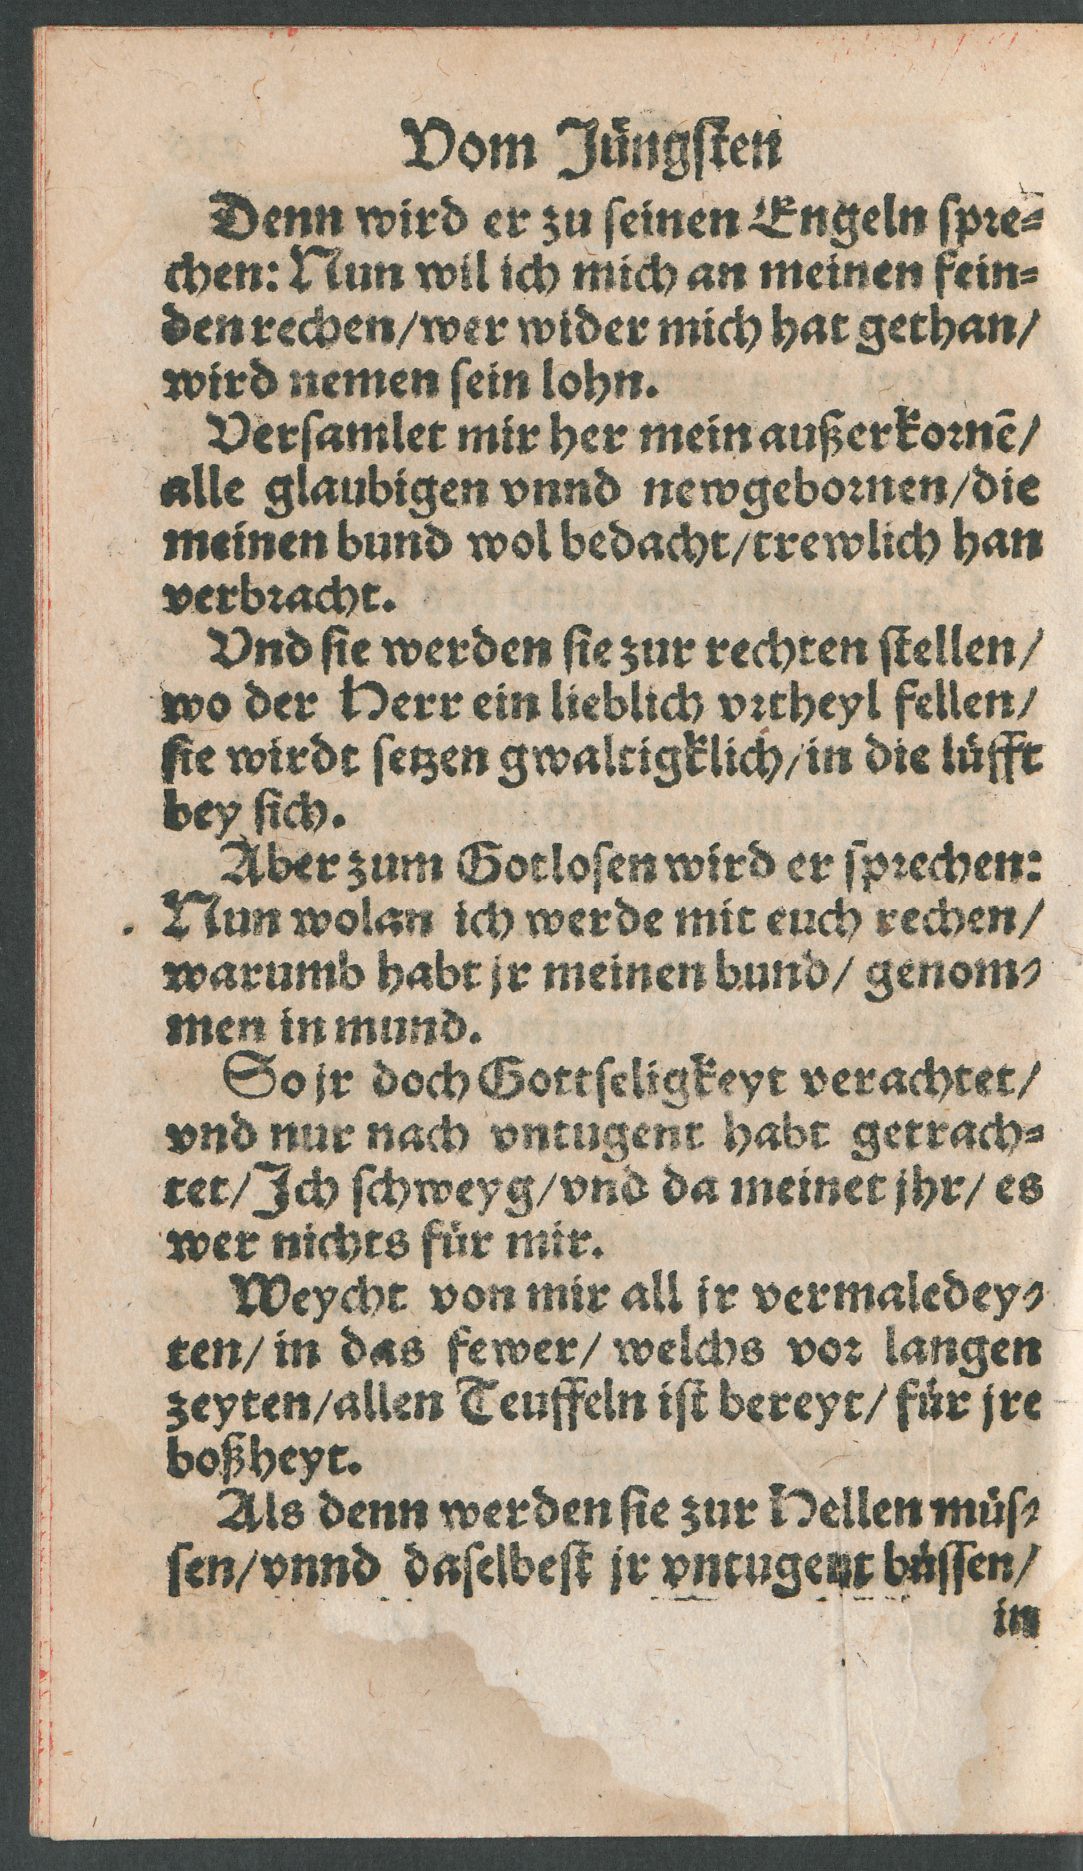 Vom Jüngsten
Denn wird er zu seinen Engeln spre=
chen: Nun wil ich mich an meinen fein=
den rechen/wer wider mich hat gethan/
wird nemen sein lohn.
Versamlet mir her mein außerkornē/
alle glaubigen vnnd newgebornen/die
meinen bund wol bedacht/trewlich han
verbracht.
Vnd sie werden sie zur rechten stellen/
wo der Herr ein lieblich vrtheyl fellen/
sie wirdt setzen gwaltigklich/in die lüfft
bey sich.
Aber zum Gotlosen wird er sprechen:
Nun wolan ich werde mit euch rechen/
warumb habt jr meinen bund/ genom=
men in mund.
So jr doch Gottseligkeyt verachtet/
vnd nur nach vntugent habt getrach=
tet/Ich schweyg/vnd da meinet jhr/ es
wer nichts für mir.
Weycht von mir all jr vermaledey=
ten/in das fewer/ welchs vor langen
zeyten/allen Teuffeln ist bereyt/ für jre
boßheyt.
Als denn werden sie zur Hellen müs=
sen/vnnd daselbest jr vntugent büssen/
in